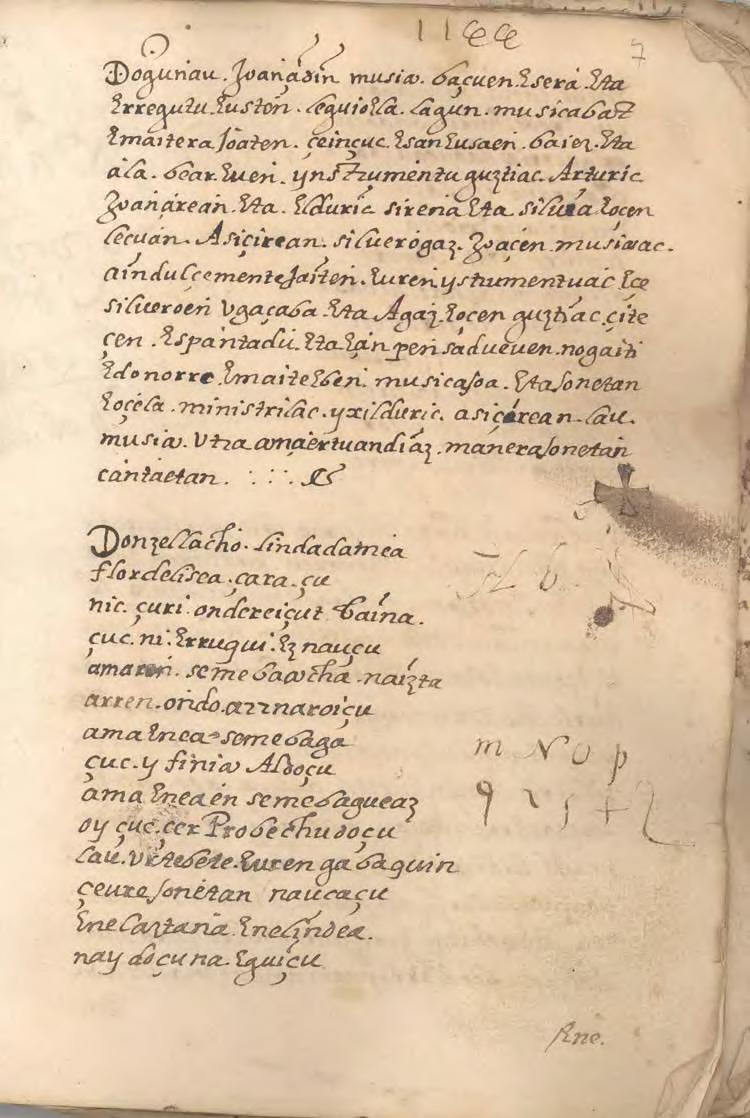 7
Dogunau. Joanadin musia. baçuen. Esera. Eta
Erregutu Eusten. leguiola. lagun. musicabat
Emaitera Joaten. ceinçuc. Esan Eusaen. baiez. Eta
ala. bear. Euen. ynstrumentu guztiac. Arturic
Joanarean. Eta. Elduric sirena Eta silueia Eocen
lecuan. Asicirean. siluerogaz. Joacen. musicac.
ain dulcemente Jaiten. Euren ystrumentuac Ece
silueroen Ugaçaba. Eta Agaz. Eocen guztiac. cite
cen. Espantadu. Eta Ean pensadueuen. nogaiti
Edo norre. Emaite Eben. musica Joa. Eta Sonetan
Eocela. ministrilac. yxilduric. asicarean. lau.
musia. Utra ama Ertuandiaz. manera Sonetan
cantaetan.
Donzellacho. linda damea
flordelisea. cara. çu
nic. çuri. ondereiçut baina.
çuc. ni. Errugui. Eznauçu
amaren. seme bawcha. naizta
arren. ondo. aznaroiçu
ama Enea seme baga
çuc. y finia Aldoçu
ama Eneaen seme bagueaz
oy çuc. cer Probechu doçu
lau. Urtebete. Euren ga baquin
çeure Sonetan naucaçu
Ene laztana. Ene lindea.
nay doçuna. Eguiçu
m N O p
Ene.